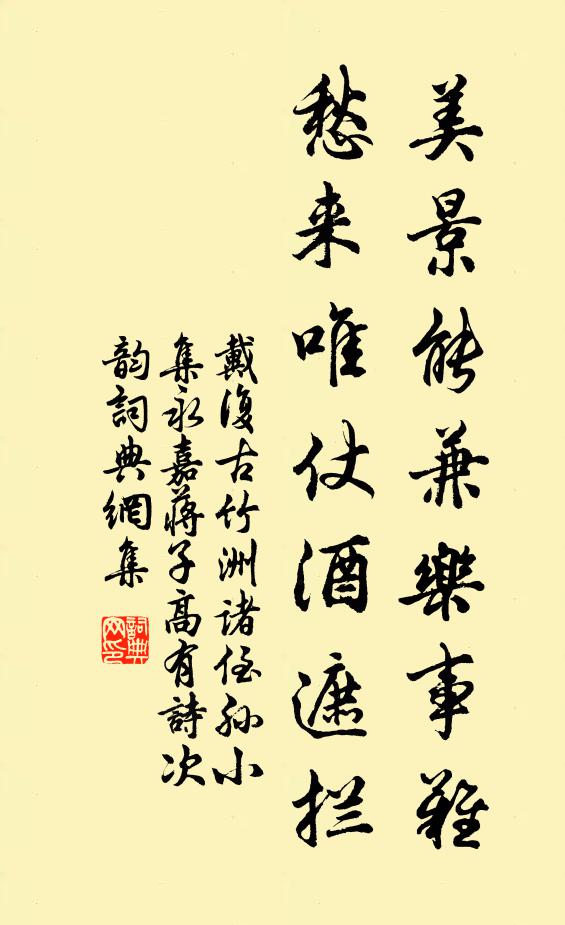 美景能兼樂事難
愁来唯仗酒遮拦
戴復古竹洲諸侄孙小
集永嘉蔣子高有詩次
韵詞典網集
詞典
网印